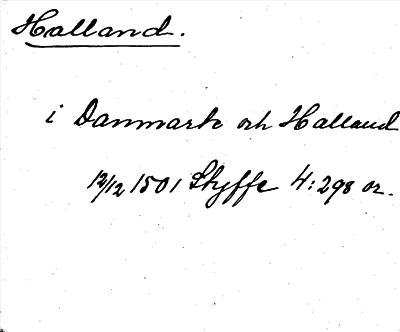 Halland.
i Danmark och Halland
12/12 1501 Styffe 4:298 or.